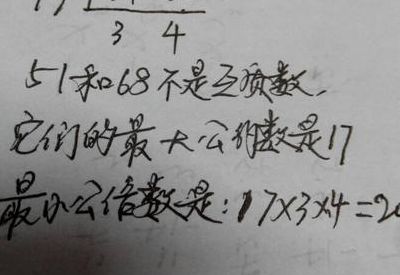 3 4
51和68不是互质数,
它们的最大公约数是17
最小公倍数是:17×3×4=20